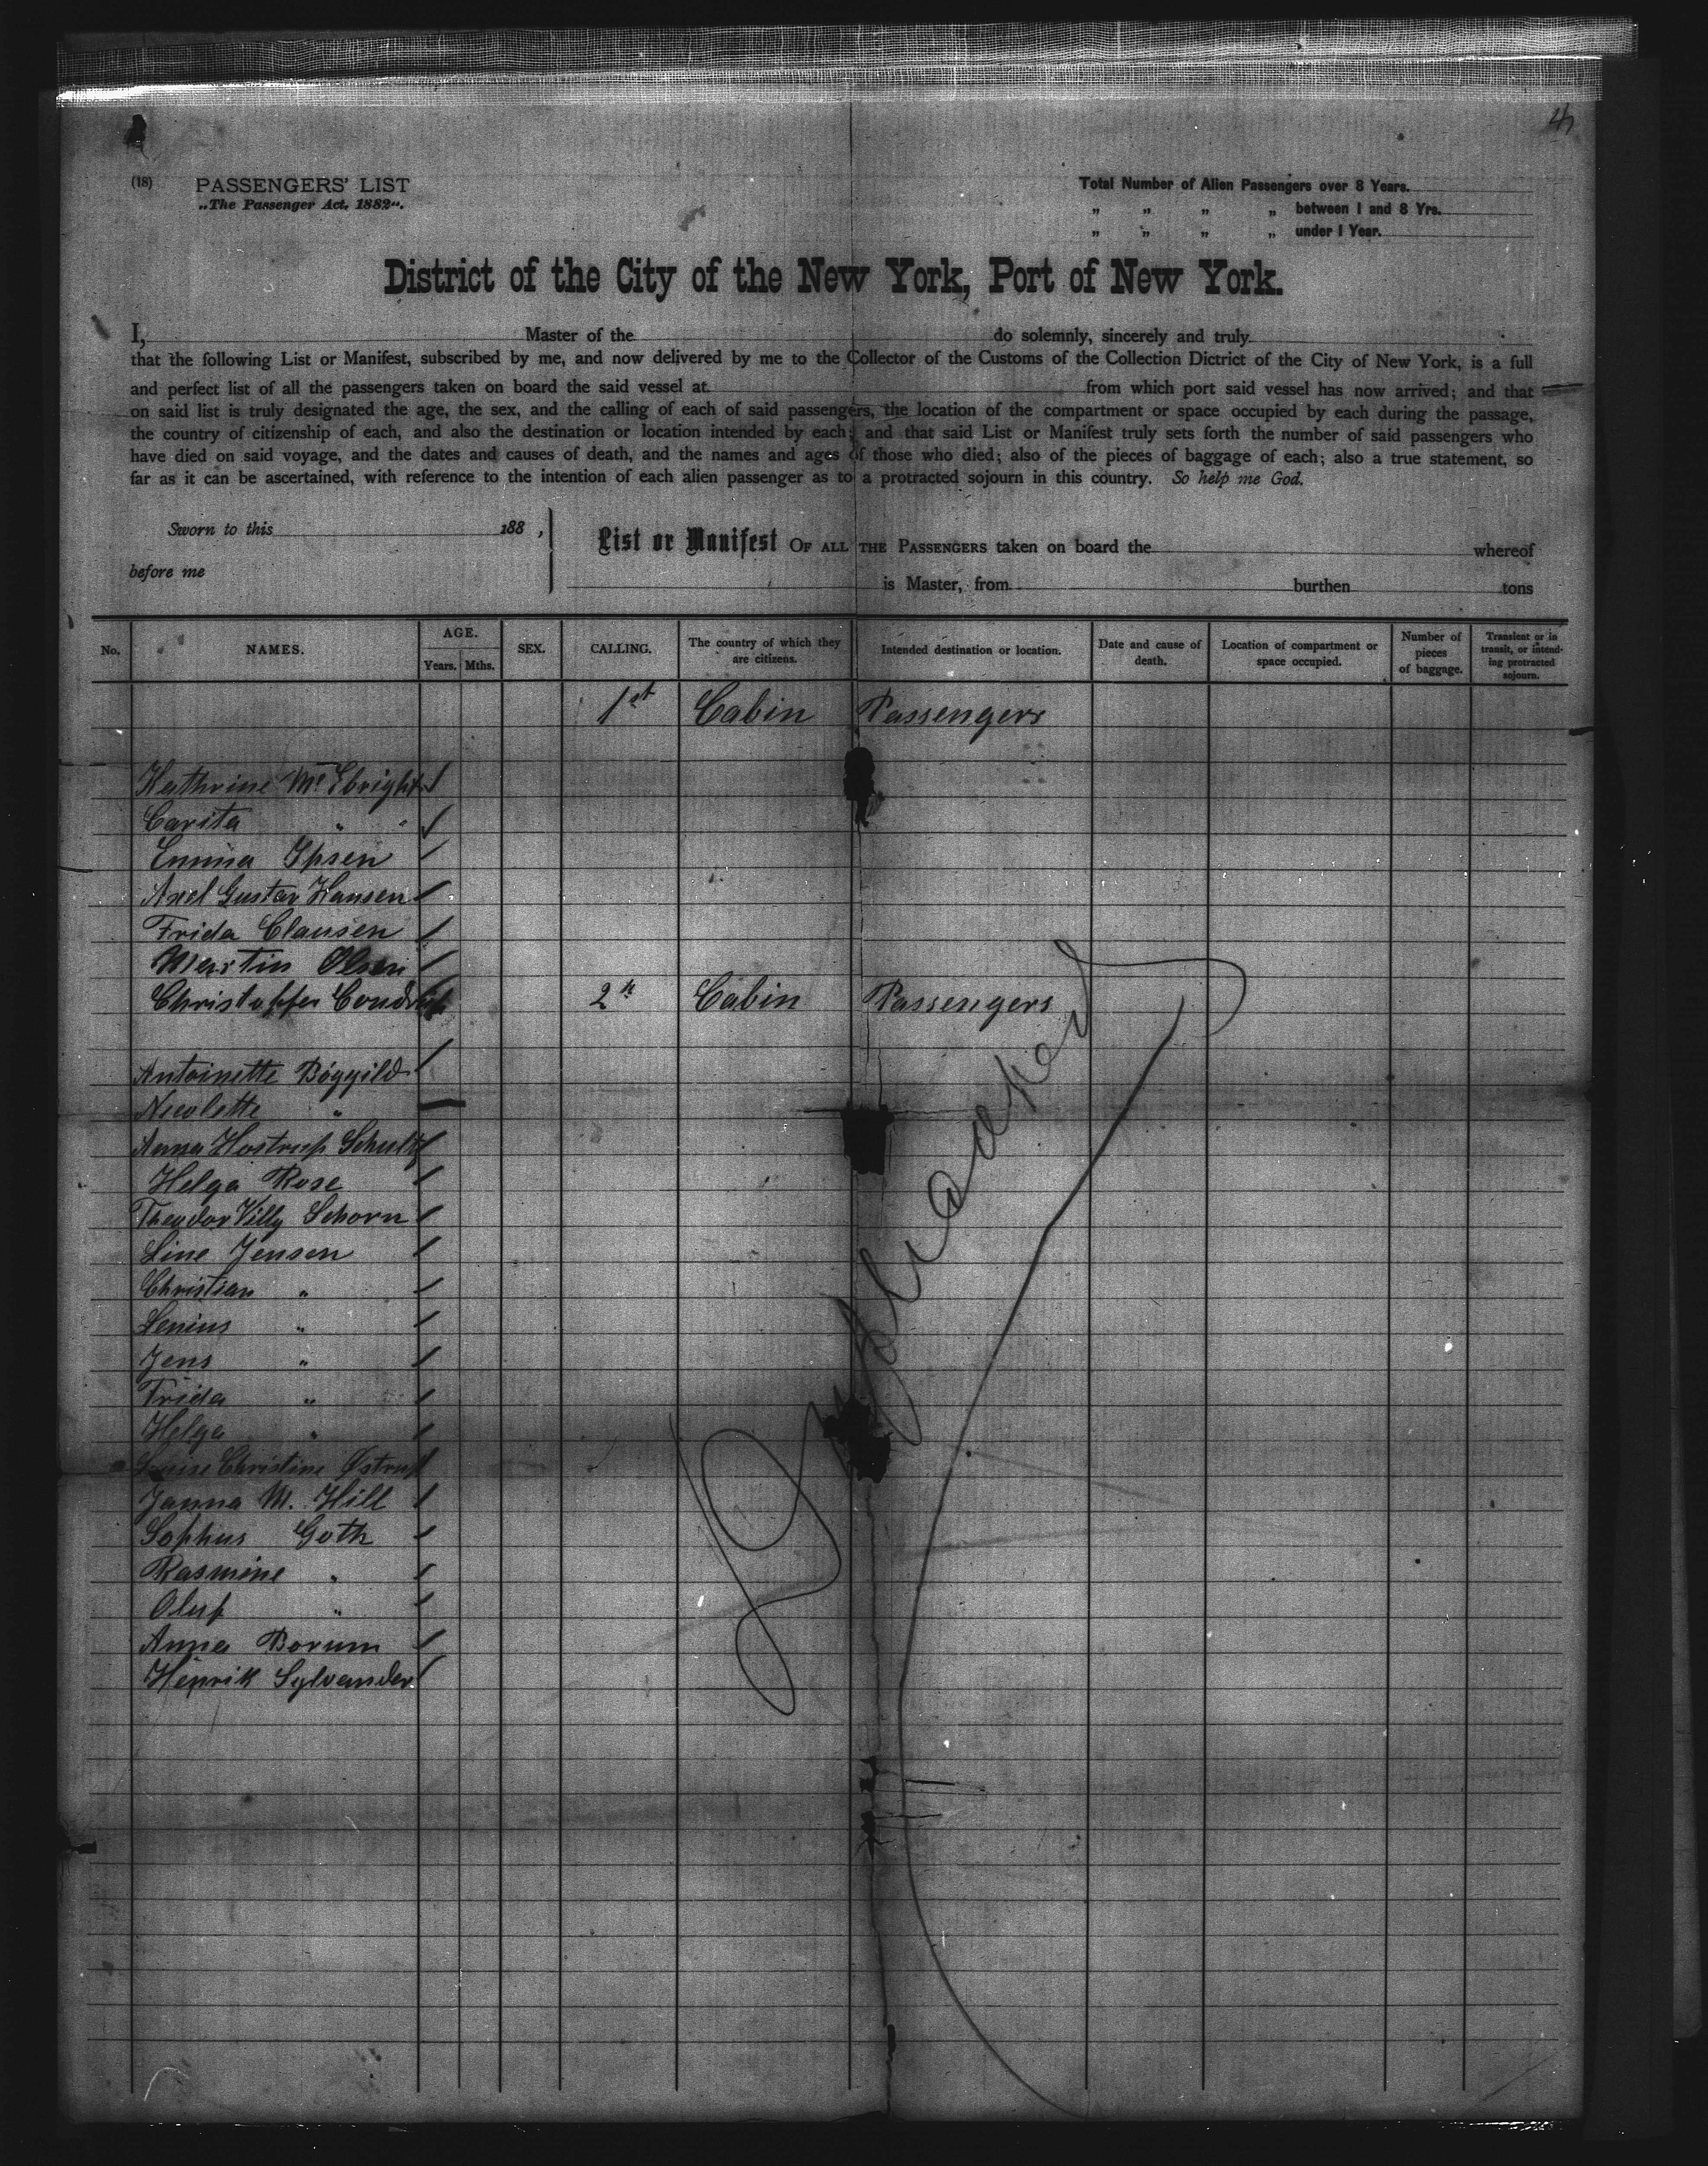 4
(18) PASSENGERS' LIST
„The Passenger Act, 1882".
Total Number of Alien Passengers over 8 Years.
„ „ „ „ between 1 and 8 Yrs.
„ „ „ „ under 1 Year.
District of the City of the New York, Port of New York.
I, Master of the do solemnly, sincerely and truly
that the following List or Manifest, subscribed by me, and now delivered by me to the Collector of the Customs of the Collection Dictrict of the City of New York, is a full
and perfect list of all the passengers taken on board the said vessel at from which port said vessel has now arrived; and that
on said list is truly designated the age, the sex, and the calling of each of said passengers, the location of the compartment or space occupied by each during the passage,
the country of citizenship of each, and also the destination or location intended by each; and that said List or Manifest truly sets forth the number of said passengers who
have died on said voyage, and the dates and causes of death, and the names and ages of those who died; also of the pieces of baggage of each; also a true statement, so
far as it can be ascertained, with reference to the intention of each alien passenger as to a protracted sojourn in this country. So help me God.
Sworn to this 188 ,
before me
List or Manifest OF ALL THE PASSENGERS taken on board the whereof
is Master, from burthen tons
No. NAMES. AGE. Years. Mths. SEX. CALLING. The country of which they are citizens. Intended destination or location. Date and cause of death. Location of compartment or space occupied. Number of pieces of baggage. Transient or in transit, or intending protracted sojourn.
1st Cabin Passengers
Kathrine Mc Ebright
Carita " "
Emma Ipsen
Axel Gustav Hansen
Frida Clausen
Martin Olsen
Christoffer
2n Cabin Passengers
Antoinette Bøggild
Nicolette "
Anna Hostrup Schultz
Helga Rose
Theodor Villy Schorn
Line Jensen
Christian "
Lenius "
Jens "
Frida "
Helga "
Louise Christine Østrup
Janna M. Hill
Sophus Goth
Rasmine "
Oluf "
Anna Borum
Henrik Sylvander